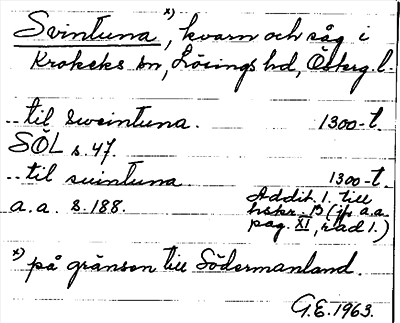 Svintuna x), kvarn och såg i
Krokeks sn, Lösings hd, Österg. l.
.. til sweintuna. 1300-t.
SÖL s. 47.
.. til suintuna. 1300-t.
a.a. s. 188. Addit. 1. till
hskr. B (jfr a.a.
pag. XI, rad 1.)
x) på gränsen till Södermanland.
G.E. 1963.